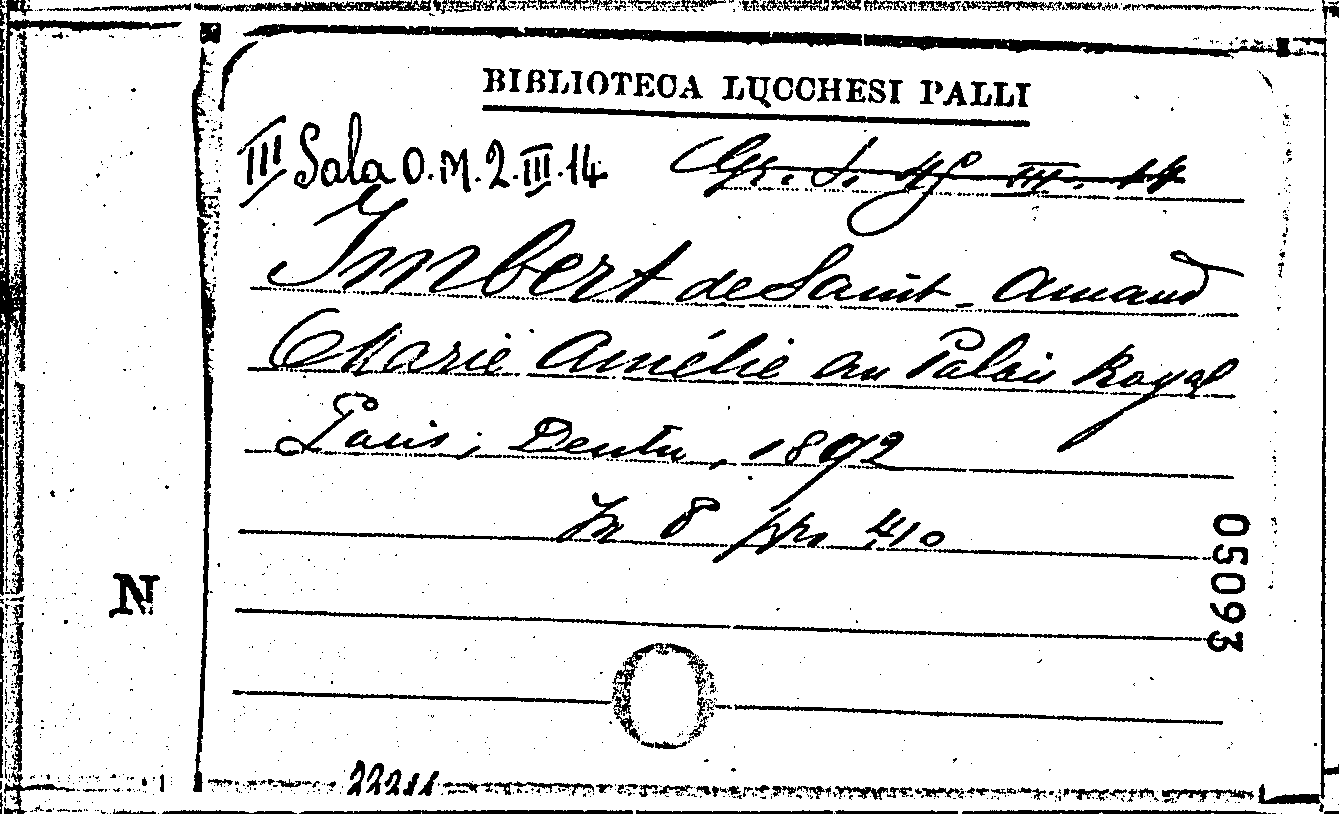 BIBLIOTECA LUCCHESI PALLI
III Sala O.M.2.III.14 Gr. S. 45 III. 14
Imbert de Saint-Amand
Marie Amélie au Palais Royal
Paris, Dentu, 1892
In 8 pp. 410
05093
N
22211